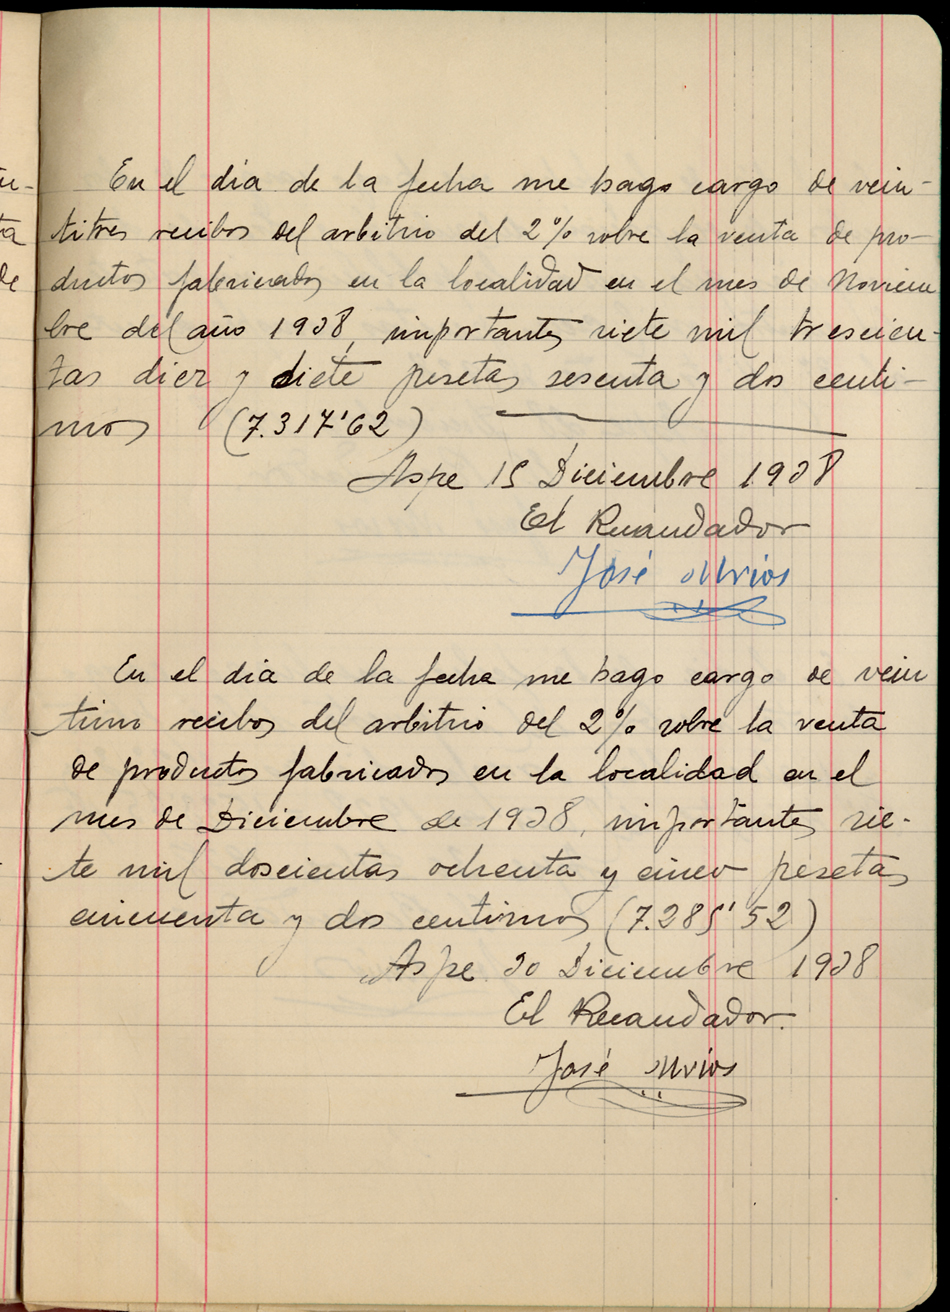 En el dia de la fecha me hago cargo de vein-
titres recibos del arbitrio del 2% sobre la venta de pro-
ductos fabricados en la localidad en el mes de Noviem
bre del año 1938, importantes siete mil trescien-
tas diez y siete pesetas sesenta y dos centi-
mos (7.317'62)
Aspe 15 Diciembre 1938
El Recaudador
José Mrios
En el dia de la fecha me hago cargo de vein
tiuno recibos del arbitrio del 2% sobre la venta
de productos fabricados en la localidad en el
mes de Diciembre de 1938, importantes sie-
te mil doscientas ochenta y cinco pesetas
cincuenta y dos centimos (7.285'52)
Aspe 30 Diciembre 1938
El Recaudador.
José Mrios